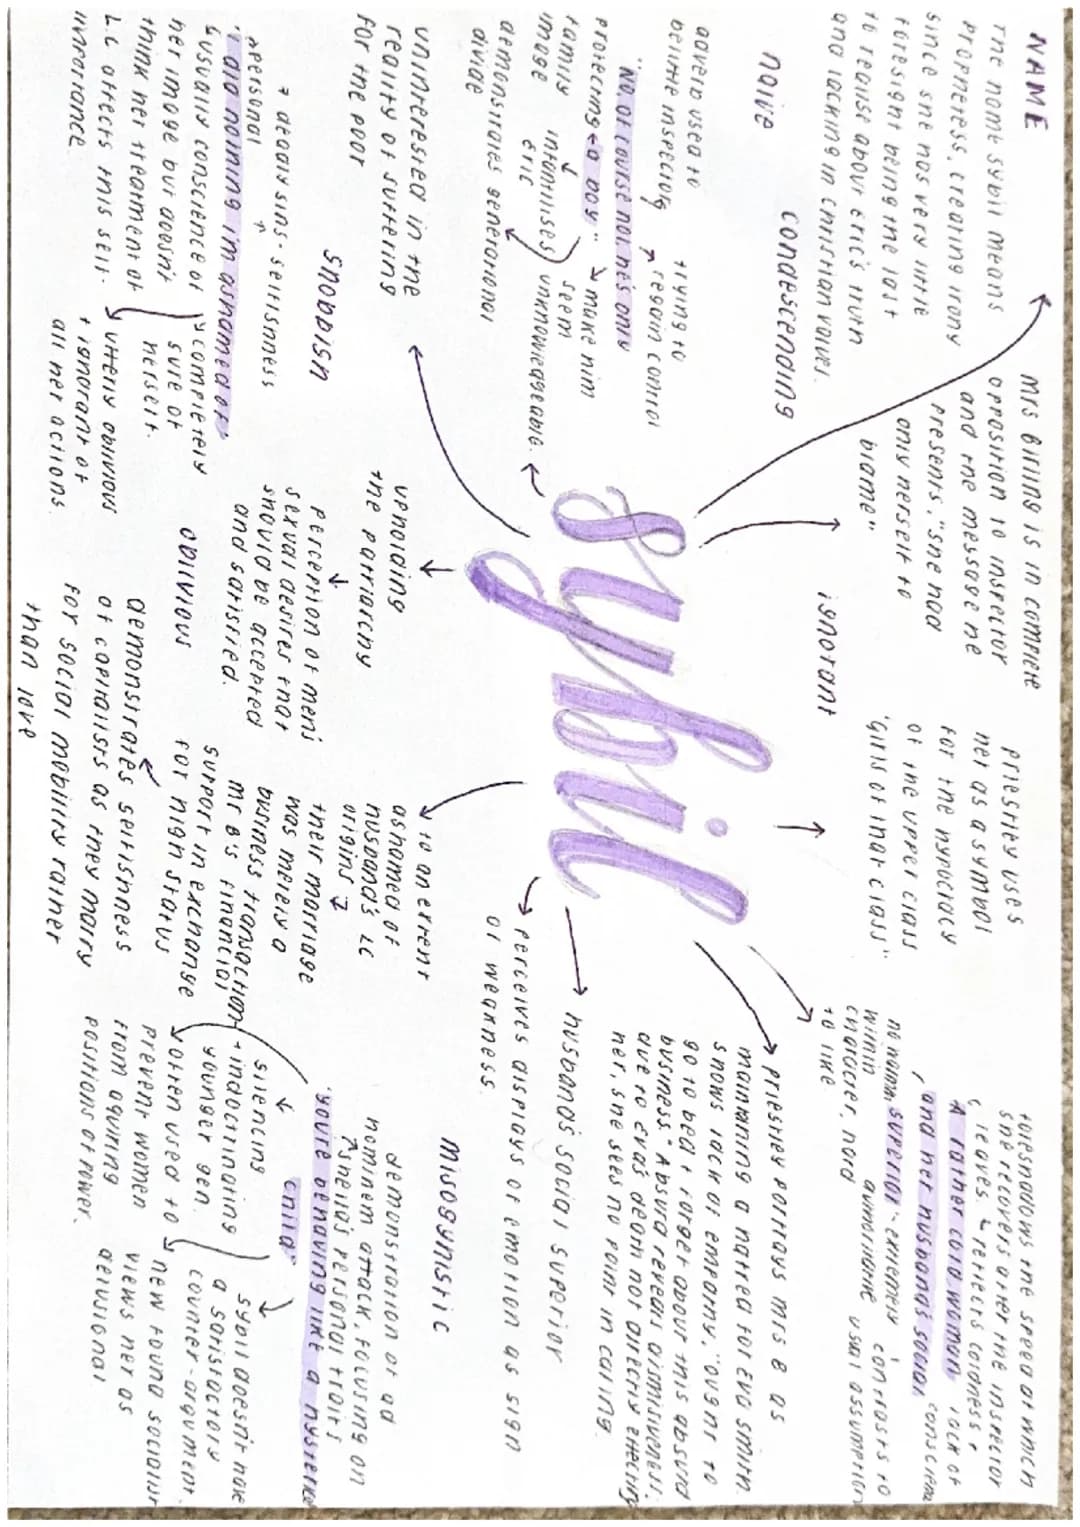 NAME
The name sybil means
prophetess, creating irony
since she has very little
foresight being the last
to realise about eric's truth
and lacking in christian values.
Mrs Birling is in complete
opposition to inspector
and the message he
presents, "she had
only herself to
blame"
priestley uses
her as a symbol
for the hypocracy
of the upper class
"girls of that class"
foreshadows the speed at which
she recovers after the inspector
leaves. reflects coldness +
lack of
"A rather cold woman
and her husbands social
superior"
extremely
within
character, hard
to like
contrasts to
audiences usual assumption
naive
condescending
ignorant
priestley portrays mrs B as
maintaining a hatred for eva smith.
shows lack of empathy, "ought to
go to bed + forget about this absurd
business." Absurd reveals dismissiveness.
due to evas death not directly effecting
her, she sees no point in caring.
husband's social superior
perceives displays of emotion as sign
of weakness.
sybil
adverb used to
belittle inspector
trying to
regain control
"No, of course not, he's only
a boy"
protecting
family
image
infantilises
eric
make him
seem
unknowledgeable.
demonstrates generational
divide
uninterested in the
reality of suffering
for the poor
snobbish
upholding
the patriarchy
perception of mens
sexual desires that
should be accepted
and satisfied.
oblivious
deadly sins - selfishness
+ personal
"I did nothing im ashamed of"
usually conscience of
her image but doesn't
think her treatment of
L.C affects this self-
completely
sure of
herself.
utterly oblivious
+ ignorant of
all her actions.
to an extent
ashamed of
husband's LC
origins
their marriage
was merely a
business transaction
mr B's financial
support in exchange
for high status
demonstrates selfishness
of capitalists as they marry
for social mobility rather
than love
misogynistic
demonstration of ad
hominem attack, focusing on
sheila's personal traits
"you're behaving like a hysterical
child"
silencing
+ indoctrinating
younger gen.
often used to
prevent women
from aquiring
positions of power.
sybil doesn't have
a satisfactory
counter-argument.
new found socialist
views her as
delusional